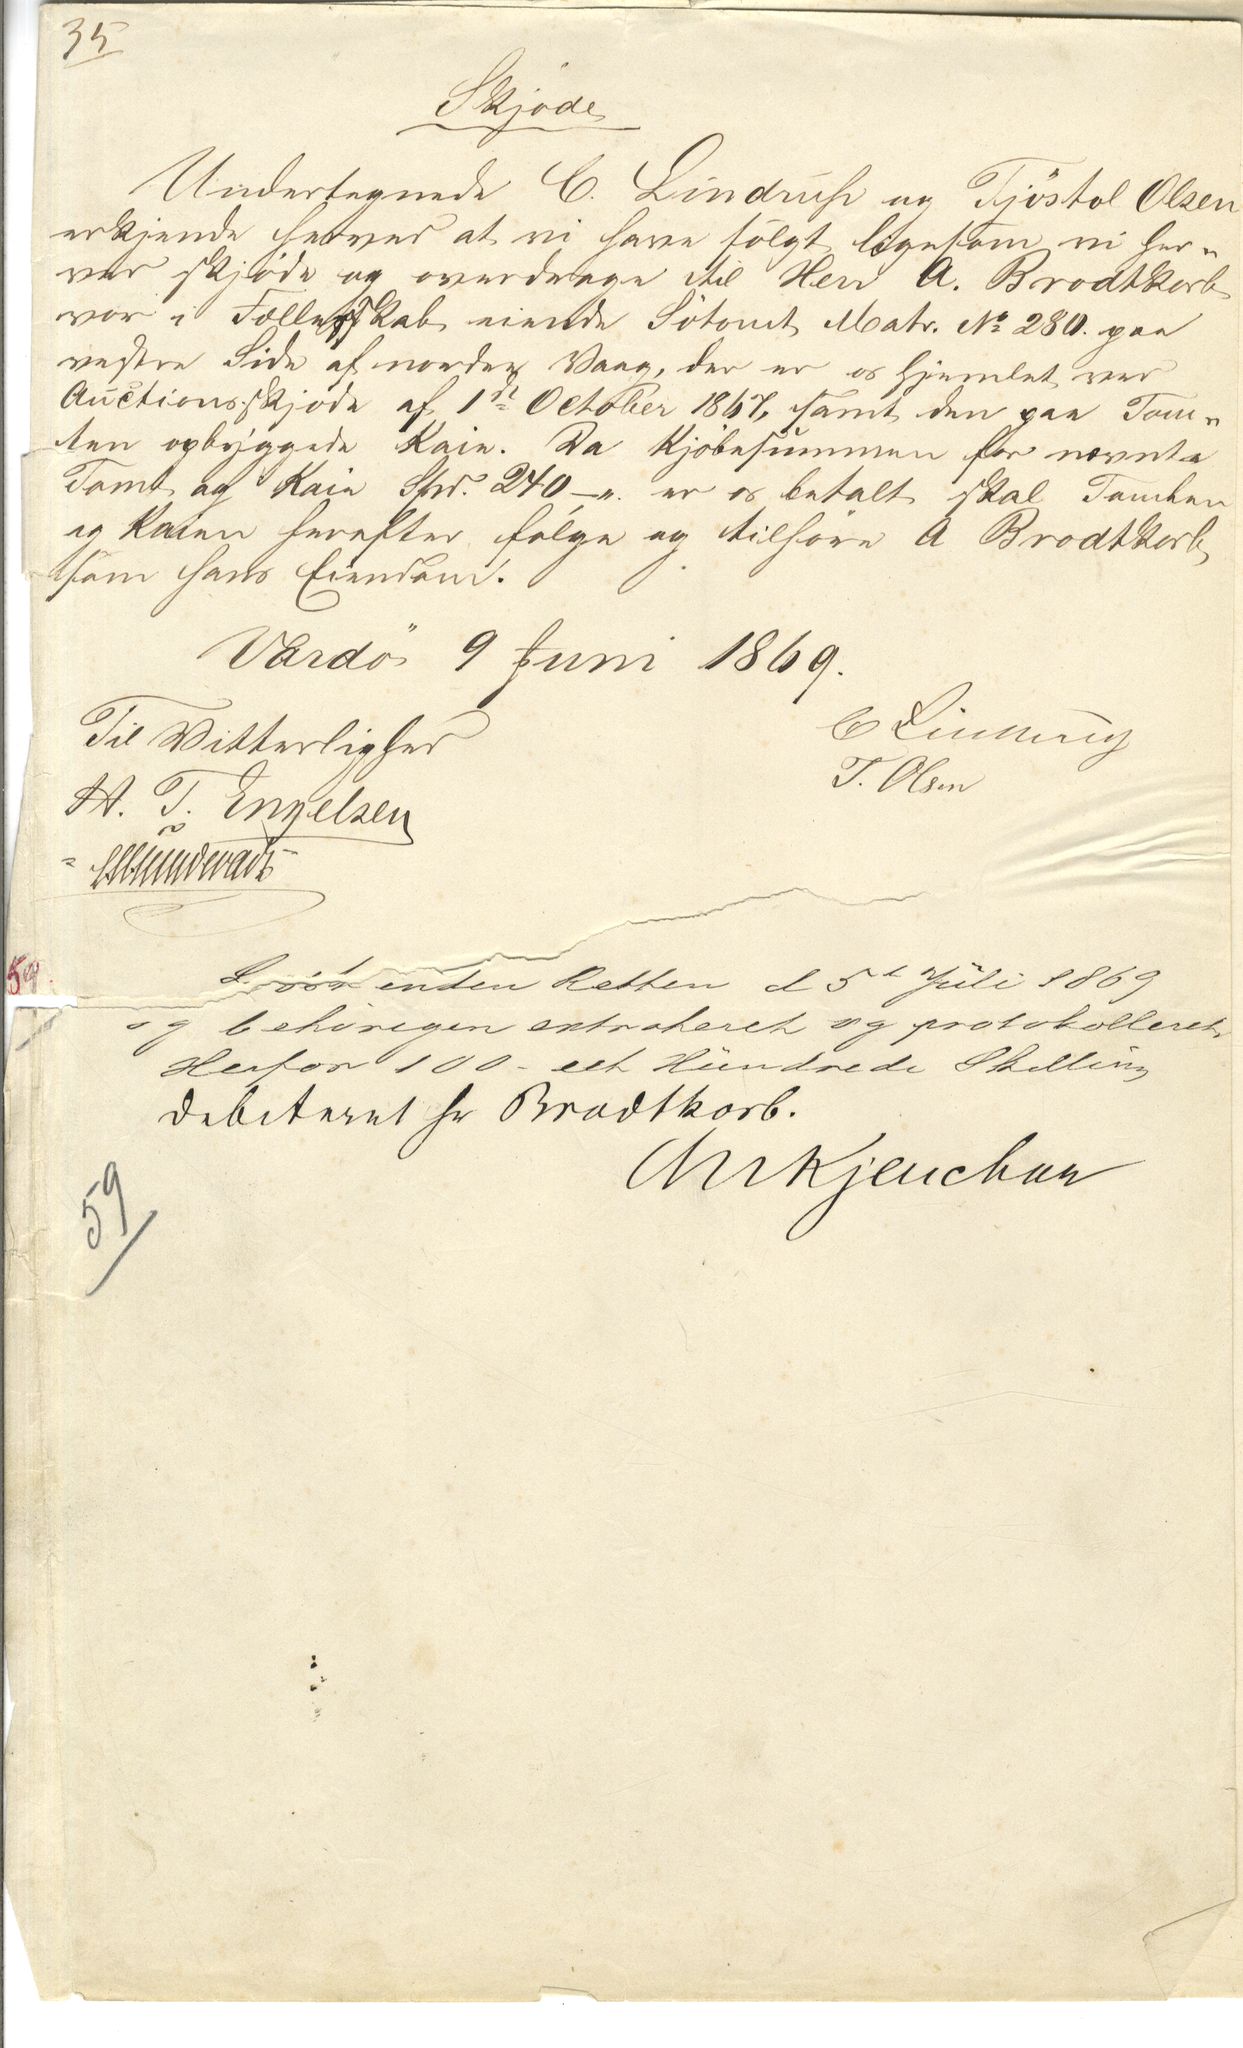 35
Skjøde
Undertegnede C. Lindrup og Tjöstol Olsen
erkjende herved at vi have solgt ligesom vi her-
ved skjöde og overdrage til Herr A. Brodtkorb
vor i Fællesskab eiende Sötomt Matr. No 280. paa
vestre Side af nordre Vaag, der er os hjemlet ved
Auctionsskjöde af 1ste October 1867, samt den paa Tom-
ten opbyggede Kaie. Da Kjöbesummen for nævnte
Tomt og Kaie Spd. 240 er os betalt skal Tomten
og Kaien herefter fölge og tilhöre A Brodtkorb
som hans Eiendom.
Vardö 9 Juni 1869.
Til Vitterlighed
C Lindrup
H. T. Engelsen
T. Olsen
59.
Læst inden Retten d 5t Juli 1869
og behörigen extraheret og protokolleret.
Herfor 100 - eet Hundrede Skilling
debiteret hr Brodtkorb.
59